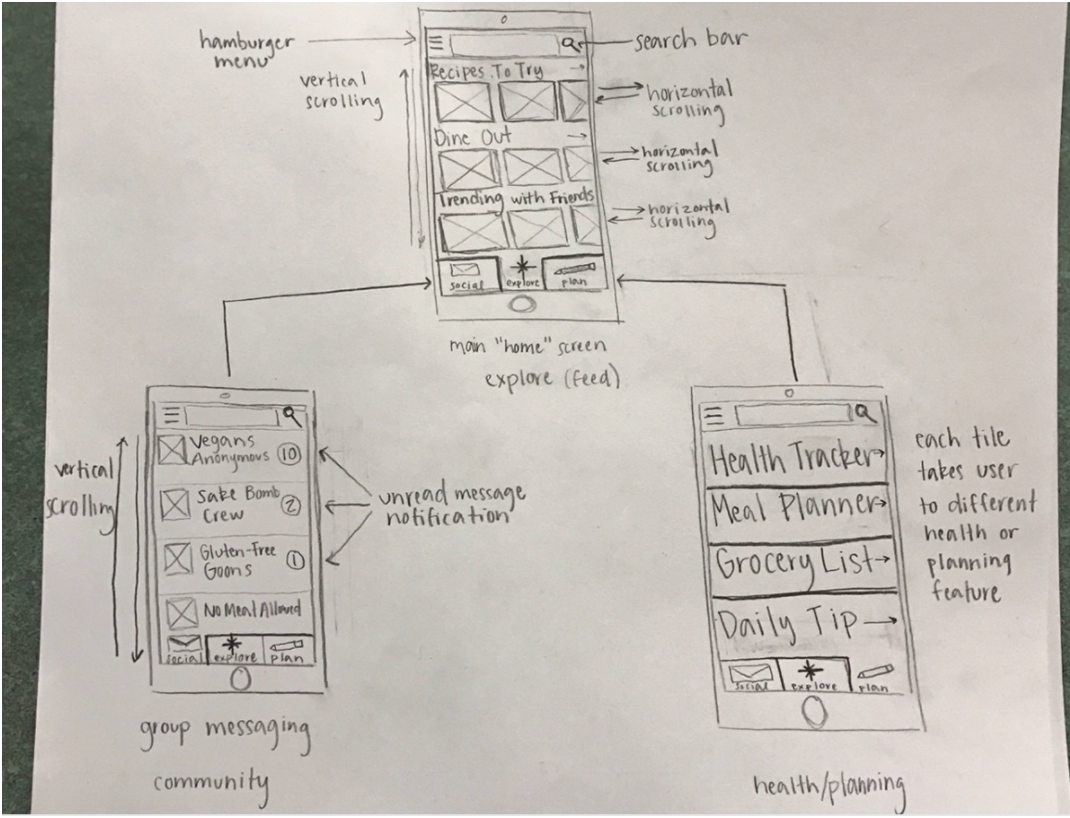 hamburger
menu
search bar
vertical
scrolling
Recipes To Try →
horizontal
scrolling
Dine Out →
horizontal
scrolling
Trending with Friends
horizontal
scrolling
social
explore
plan
main "home" screen
explore (feed)
vertical
scrolling
Vegans
Anonymous 10
Sake Bomb
Crew 2
Gluten-Free
Goons 1
No Meal Allowed
social
explore
plan
unread message
notification
group messaging
community
Health Tracker→
Meal Planner→
Grocery List→
Daily Tip →
social
explore
plan
each tile
takes user
to different
health or
planning
feature
health/planning